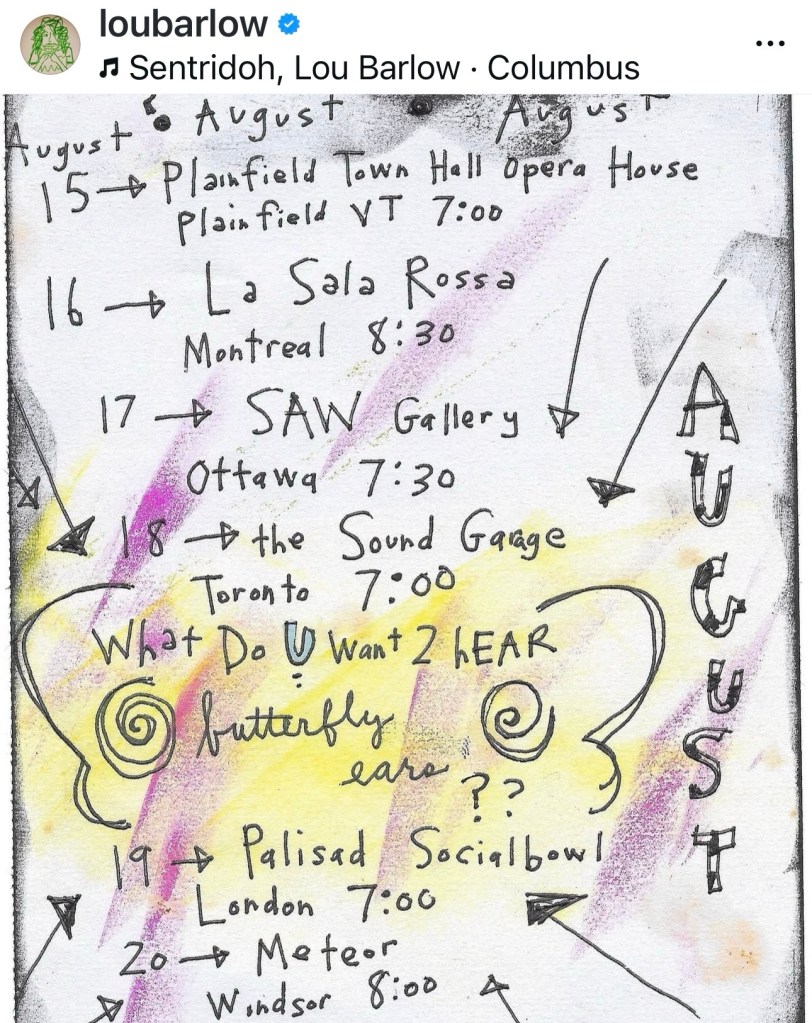 loubarlow
Sentridoh, Lou Barlow · Columbus
August August August
15 → Plainfield Town Hall Opera House
Plainfield VT 7:00
16 → La Sala Rossa
Montreal 8:30
17 → SAW Gallery
Ottawa 7:30
18 → the Sound Garage
Toronto 7:00
What Do U Want 2 hEAR
butterfly
ears ??
19 → Palisad Socialbowl
London 7:00
20 → Meteor
Windsor 8:00
AUGUST